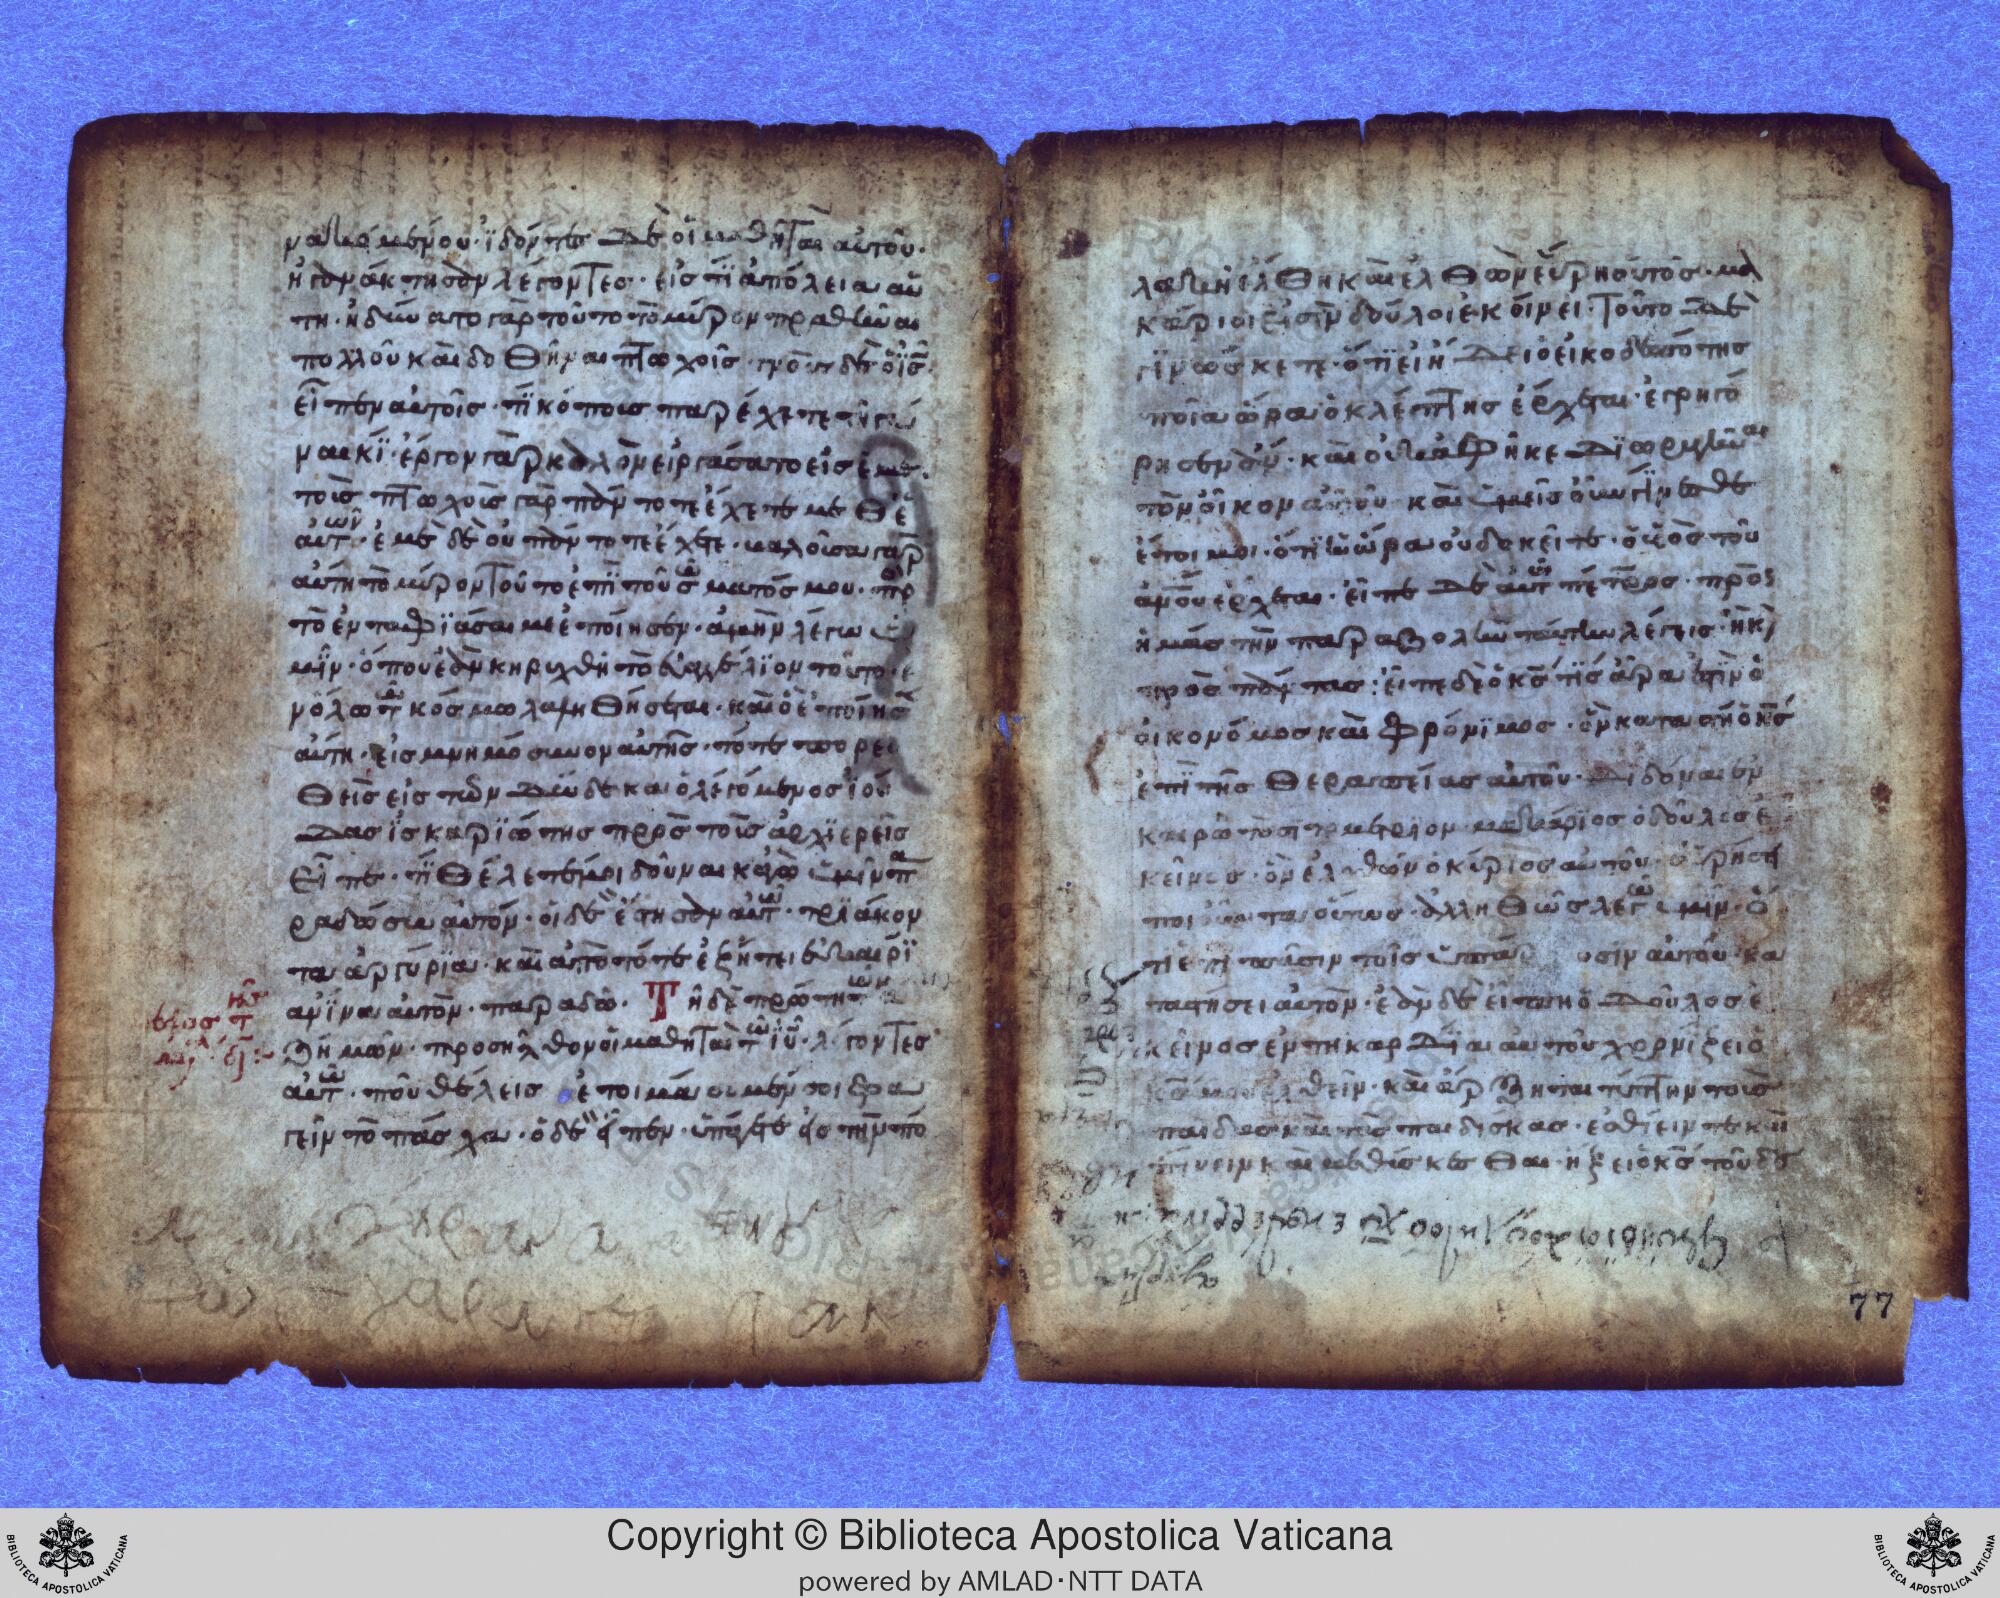 νακειμένου· ἰδόντες δὲ οἱ μαθηταὶ αὐτοῦ·
ἠγανάκτησαν λέγοντες· εἰς τί ἡ ἀπόλεια αὕ
τη· ἠδύνατο γὰρ τοῦτο τὸ μύρον πραθῆναι
πολλοῦ καὶ δοθῆναι πτωχοῖς· γνοὺς δὲ ὁ ις
εἶπεν αὐτοῖς· τί κόπους παρέχετε τῇ γυ
ναικί· ἔργον γὰρ καλὸν εἰργάσατο εἰς ἐμέ·
τοὺς πτωχοὺς γὰρ πάντοτε ἔχετε μεθ ἑ
αυτῶν· ἐμὲ δὲ οὐ πάντοτε ἔχετε· βαλοῦσα γὰρ
αὕτη τὸ μύρον τοῦτο ἐπὶ τοῦ σώματός μου· πρ
τὸ ἐνταφιάσαι με ἐποίησεν· ἀμὴν λέγω ὑ
μῖν· ὅπου ἐὰν κηρυχθῇ τὸ εὐαγγέλιον τοῦτο· ἐ
ν ὅλω τῶ κόσμω λαληθήσεται· καὶ ὃ ἐποίησ
αὕτη· εἰς μνημόσυνον αὐτῆς· τότε πορευ
θεὶς εἷς τῶν δώδεκα ὁ λεγόμενος ἰού
δας ἰσκαριώτης πρὸς τοὺς ἀρχιερεῖς
εἶπε· τί θέλετέ μοι δοῦναι καγὼ ὑμῖν πα
ραδώσω αὐτόν· οἱ δὲ ἔστησαν αὐτῶ· τριάκον
τα ἀργύρια· καὶ ἀπὸ τότε ἐζήτει εὐκαιρί
αν ἵνα αὐτὸν· παραδῶ· Τῇ δὲ πρώτη τῶν
ἀζήμων· προσῆλθον οἱ μαθηταὶ τῶ ιυ· λέγοντες
αὐτῶ· ποῦ θέλεις ἑτοιμάσωμέν σοι φα
γεῖν τὸ πάσχα· ὁ δὲ εἶπεν· ὑπάγετε εἰς τὴν πό
λακῆ ἔλθη καὶ ἔλθων εὕρη οὕτως· μα
κάριοι εἰσὶν δούλοι ἐκοῖνει· τοῦτο δὲ
γινώσκετε· ὅτι εἰ ἤδει ὁ εἰκοδεσπότης
ποία ὥρα ὁ κλέπτης ἔρχεται· ἐγρηγό
ρησεν ἄν· καὶ οὐκ ἀφῆκε διωρυγῆναι
τὸν οἶκον αὐτοῦ· καὶ ὑμεῖς οὖν γίνεσθε
ἕτοιμοι· ὅτι ἧ ὥρα οὐ δοκεῖτε· ὁ υἱὸς τοῦ
ἀνου ἔρχεται· εἶπε δὲ αὐτῶ πέτρος· πρὸς
ἡμᾶς τὴν παραβολὴν ταύτην λέγεις· ἢ κ
πρὸς πάντας· εἶπε δὲ ὁ κς τίς ἄρα ἐστὶν ὁ
οἰκονόμος καὶ φρόνιμος· ὃν καταστήσ ὁ κς
ἐπὶ τῆς θεραπείας αὐτοῦ· διδόναι ἐν
καιρῶ τὸ σιτομέτριον· μακάριος ὁ δοῦλος ἐ
κεῖνος· ὃν ἐλθὼν ὁ κύριος αὐτοῦ· εὑρήσει
ποιοῦντα οὕτως· ἀλληθῶς λέγω ὑμῖν· ὅ
τι ἐπὶ πᾶσιν τοῖς ὑπάρχουσιν αὐτοῦ· κα
ταστήσει αὐτόν· ἐὰν δὲ εἴπη ὁ δοῦλος ἐ
κεῖνος ἐν τῇ καρδία αὐτοῦ χρονίζει ὁ
κς μου ἐλθεῖν· καὶ ἄρξηται τύπτην τοὺς
παῖδας καὶ τὰς παιδίσκας· ἐσθίειν τε καὶ
πίνειν καὶ μεθύσκεσθαι· ἥξει ὁ κς τοῦ δ
77
Copyright © Biblioteca Apostolica Vaticana
powered by AMLAD·NTT DATA
BIBLIOTECA APOSTOLICA VATICANA
BIBLIOTECA APOSTOLICA VATICANA